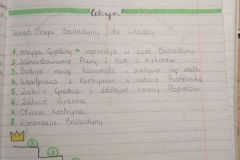 Lekcja
Temat: Droga Balladyny do władzy
1. Intryga Goplany → ingerencja w życie Balladyny
2. Zamordowanie Aliny i ślub z Kirkorem
3.
4. Współpraca z Kostrynem i zabicie Pustelnika
5. Zabicie Grabca i zdobycie korony Popielów
6. Zabicie Kirkora
7. Otrucie Kostryna
8. Koronacja Balladyny